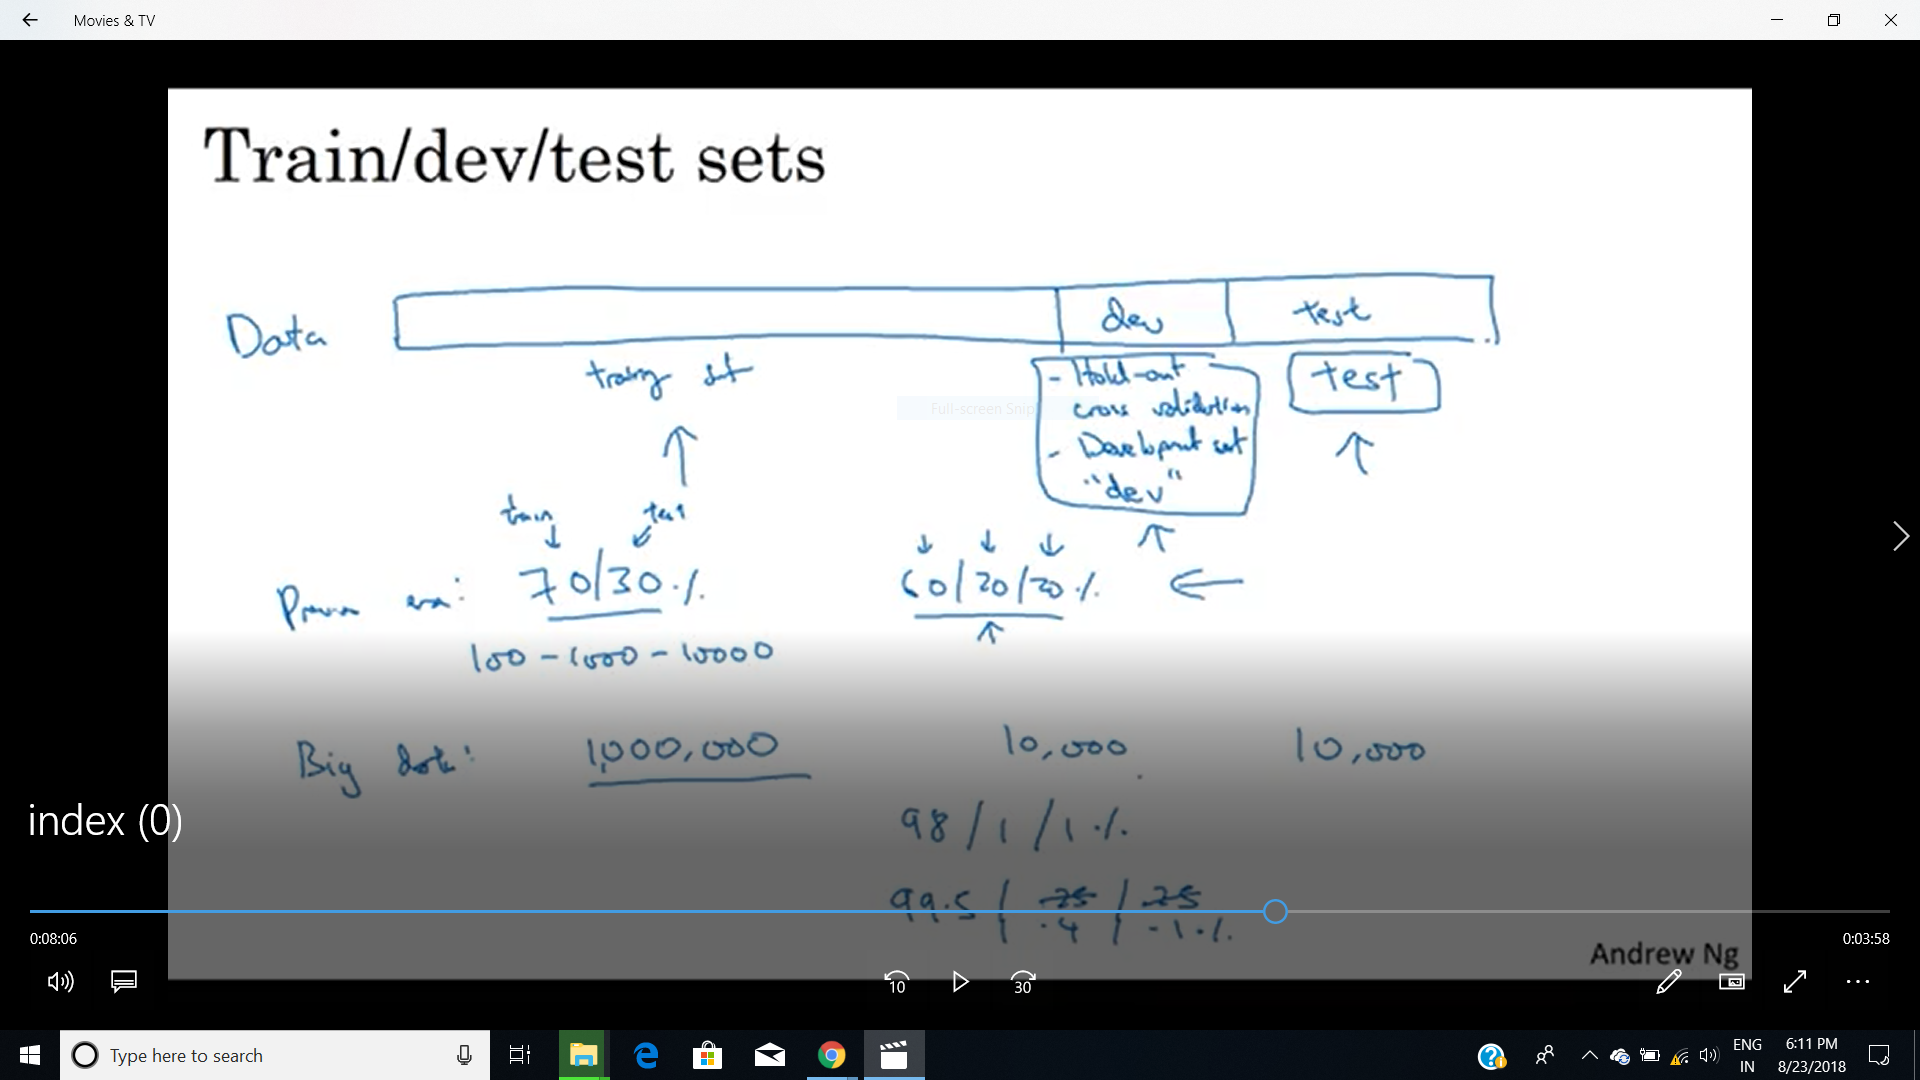 Movies & TV
Train/dev/test sets
Data
dev
test
training set
- Hold-out
cross validation
- Development set
"dev"
test
Full-screen Snip
train
test
70/30%
60/20/20%
era:
100 - 1000 - 10000
Big data:
1,000,000
10,000
10,000
98/1/1%
99.5/.25/.25
.4 .1%
index (0)
0:08:06
0:03:58
Andrew Ng
10
30
Type here to search
ENG
IN
6:11 PM
8/23/2018